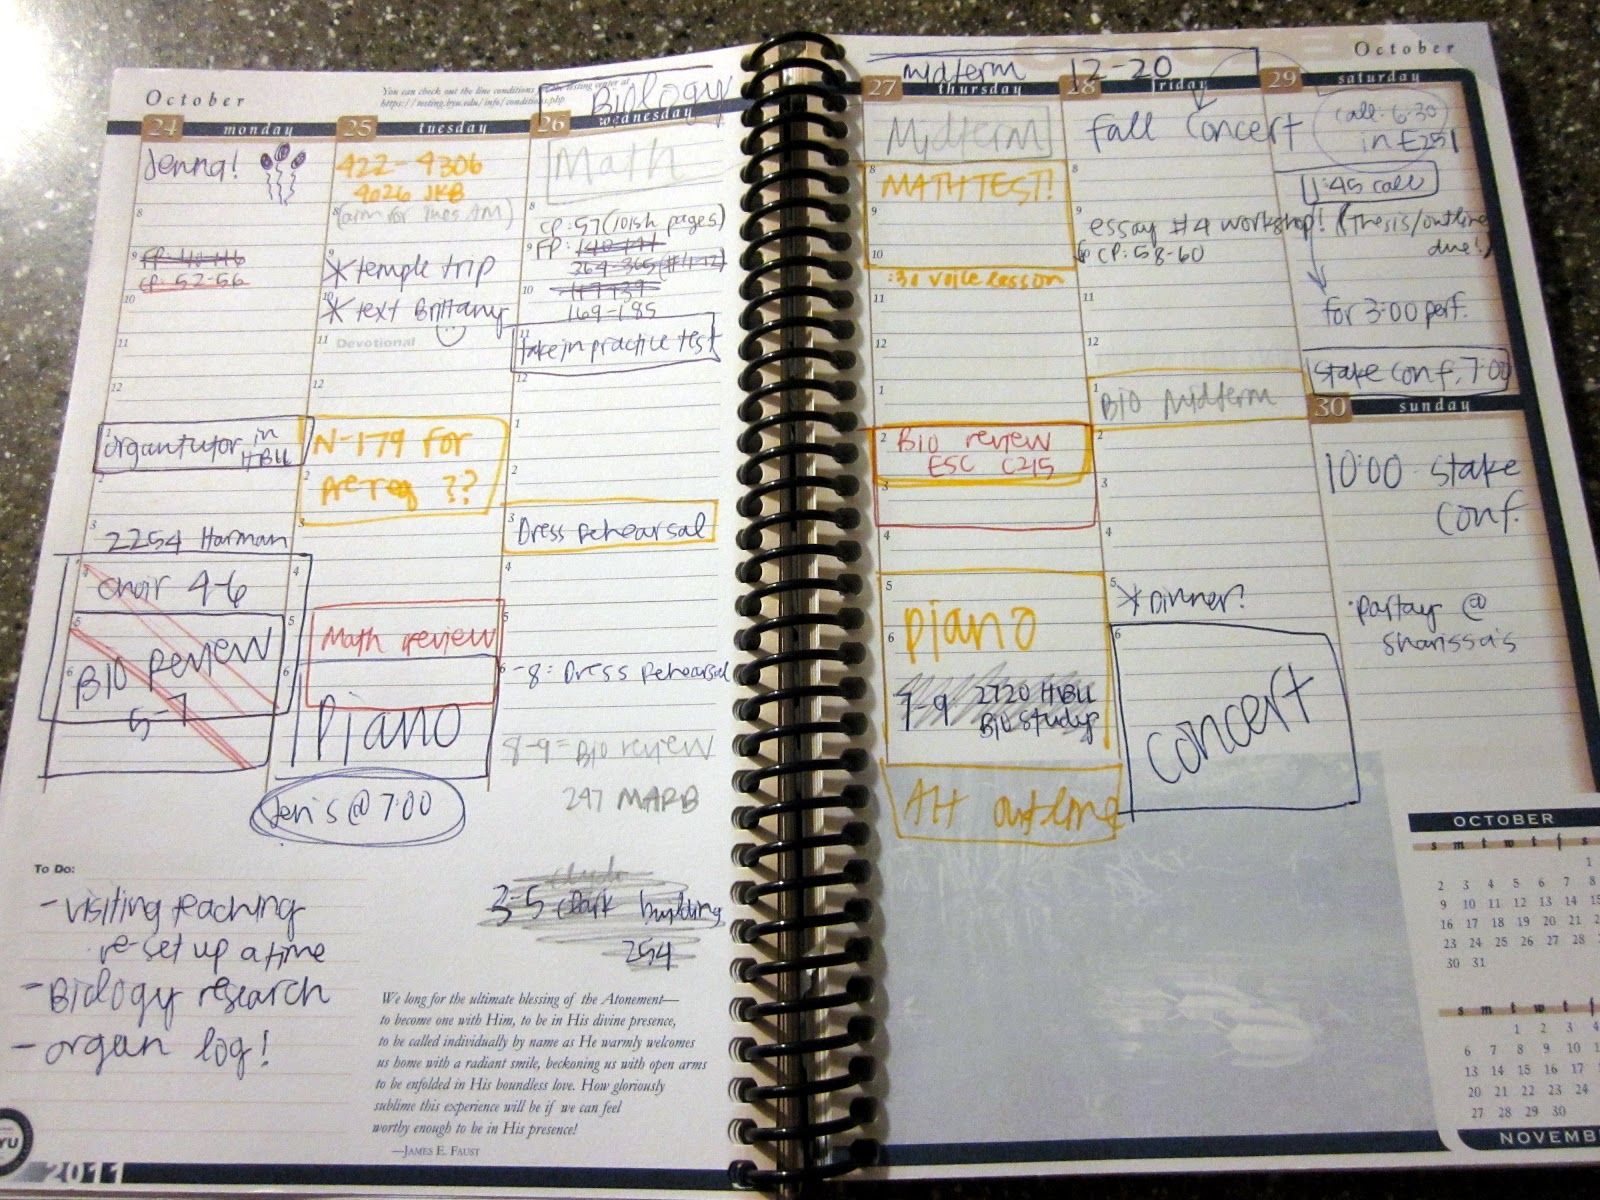 October
You can check out the line conditions at the testing center at
https://testing.byu.edu/info/conditions.php
Biology
24 monday
25 tuesday
26 wednesday
Jenna!
8
9
FP: 110-116
CP: 52-56
10
11
12
1
organ tutor in
HBLL
2
3
2254 Harman
choir 4-6
5
BIO Review
6
5-7
422-4306
4026 JKB
(aim for Tues AM)
8
9
* temple trip
10
* text Brittany
11 Devotional
12
N-179 For
2
Prereq ??
3
4
5
Math review
6
Piano
Jen's @ 7:00
Math
8
CP: 57 (101sh pages)
9
FP:
264-365 (#1-12)
10
169-185
11
take in practice test
12
1
2
3
Dress Rehearsal
4
5
6
-8: Dress Rehearsal
8-9= Bio review
247 MARB
3-5 Clark building
254
To Do:
- visiting teaching
re-set up a time
- Biology research
- organ log!
We long for the ultimate blessing of the Atonement—
to become one with Him, to be in His divine presence,
to be called individually by name as He warmly welcomes
us home with a radiant smile, beckoning us with open arms
to be enfolded in His boundless love. How gloriously
sublime this experience will be if we can feel
worthy enough to be in His presence!
—JAMES E. FAUST
YU
2011
October
midterm 12-20
27 thursday
28 friday
29 saturday
Midterm
8
MATH TEST!
9
10
:30 voice lesson
11
12
1
2
BIO review
ESC C215
3
4
5
piano
6
7-9 2720 HBLL
Bio study
AH outline
Fall Concert
8
9
essay #4 workshop! (Thesis/outline
due!)
CP: 58-60
11
12
1
BIO Midterm
2
3
4
5
* Dinner?
6
Concert
call: 6:30
in E251
1:45 call
for 3:00 perf.
stake conf. 7:00
30 sunday
10:00 stake
conf.
partay @
Sharissa's
OCTOBER
s m t w t f s
1
2 3 4 5 6 7 8
9 10 11 12 13 14 15
16 17 18 19 20 21
23 24 25 26 27 28
30 31
s m t w t f
1 2 3 4
6 7 8 9 10 1
13 14 15 16 17
20 21 22 23 24
27 28 29 30
NOVEMB